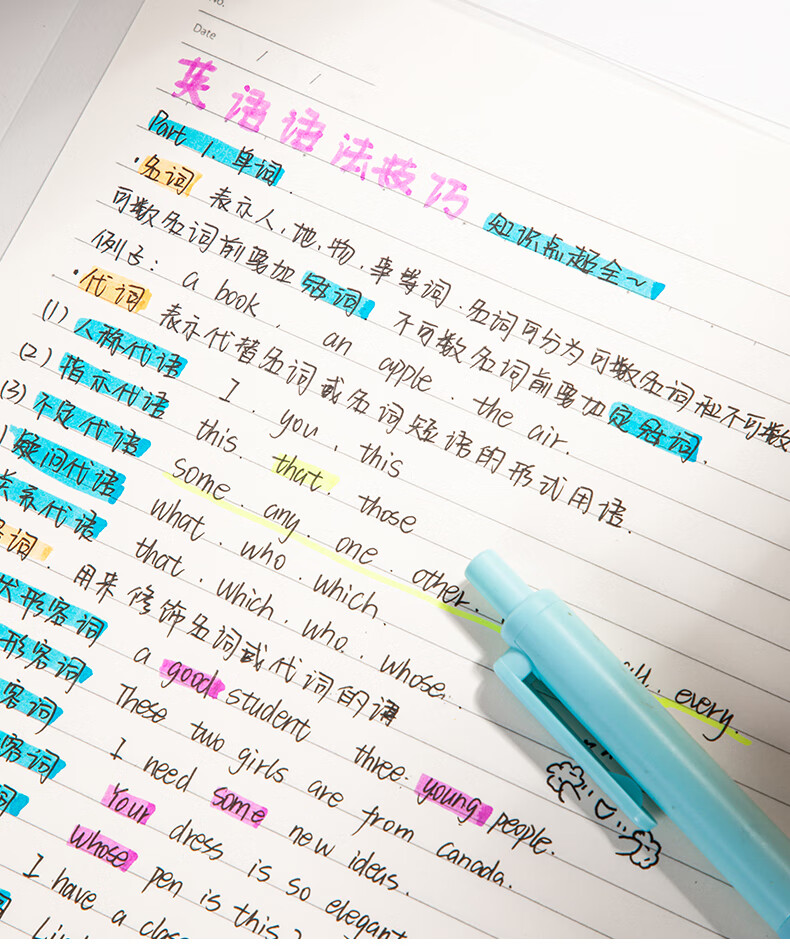 No.
Date / /
英语语法技巧
知识点超全~
Part 1. 单词
·名词 表示人、地、物、事等词.名词可分为可数名词和不可数
可数名词前要加冠词、不可数名词前要加定冠词.
例子: a book. an apple. the air.
·代词 表示代替名词或名词短语的形式用语.
(1)人称代语 I. you. this
(2)指示代语 this. that. those
(3)不定代语 some. any. one. other. every.
疑问代语 what. who. which.
关系代语 that. which. who. whose.
词. 用来修饰名词或代词的
状形容词 a good student three young people.
形容词 These two girls are from canada.
容词 I need some new ideas.
容词 Your dress is so elegant
词 whose pen is this?
I have a close